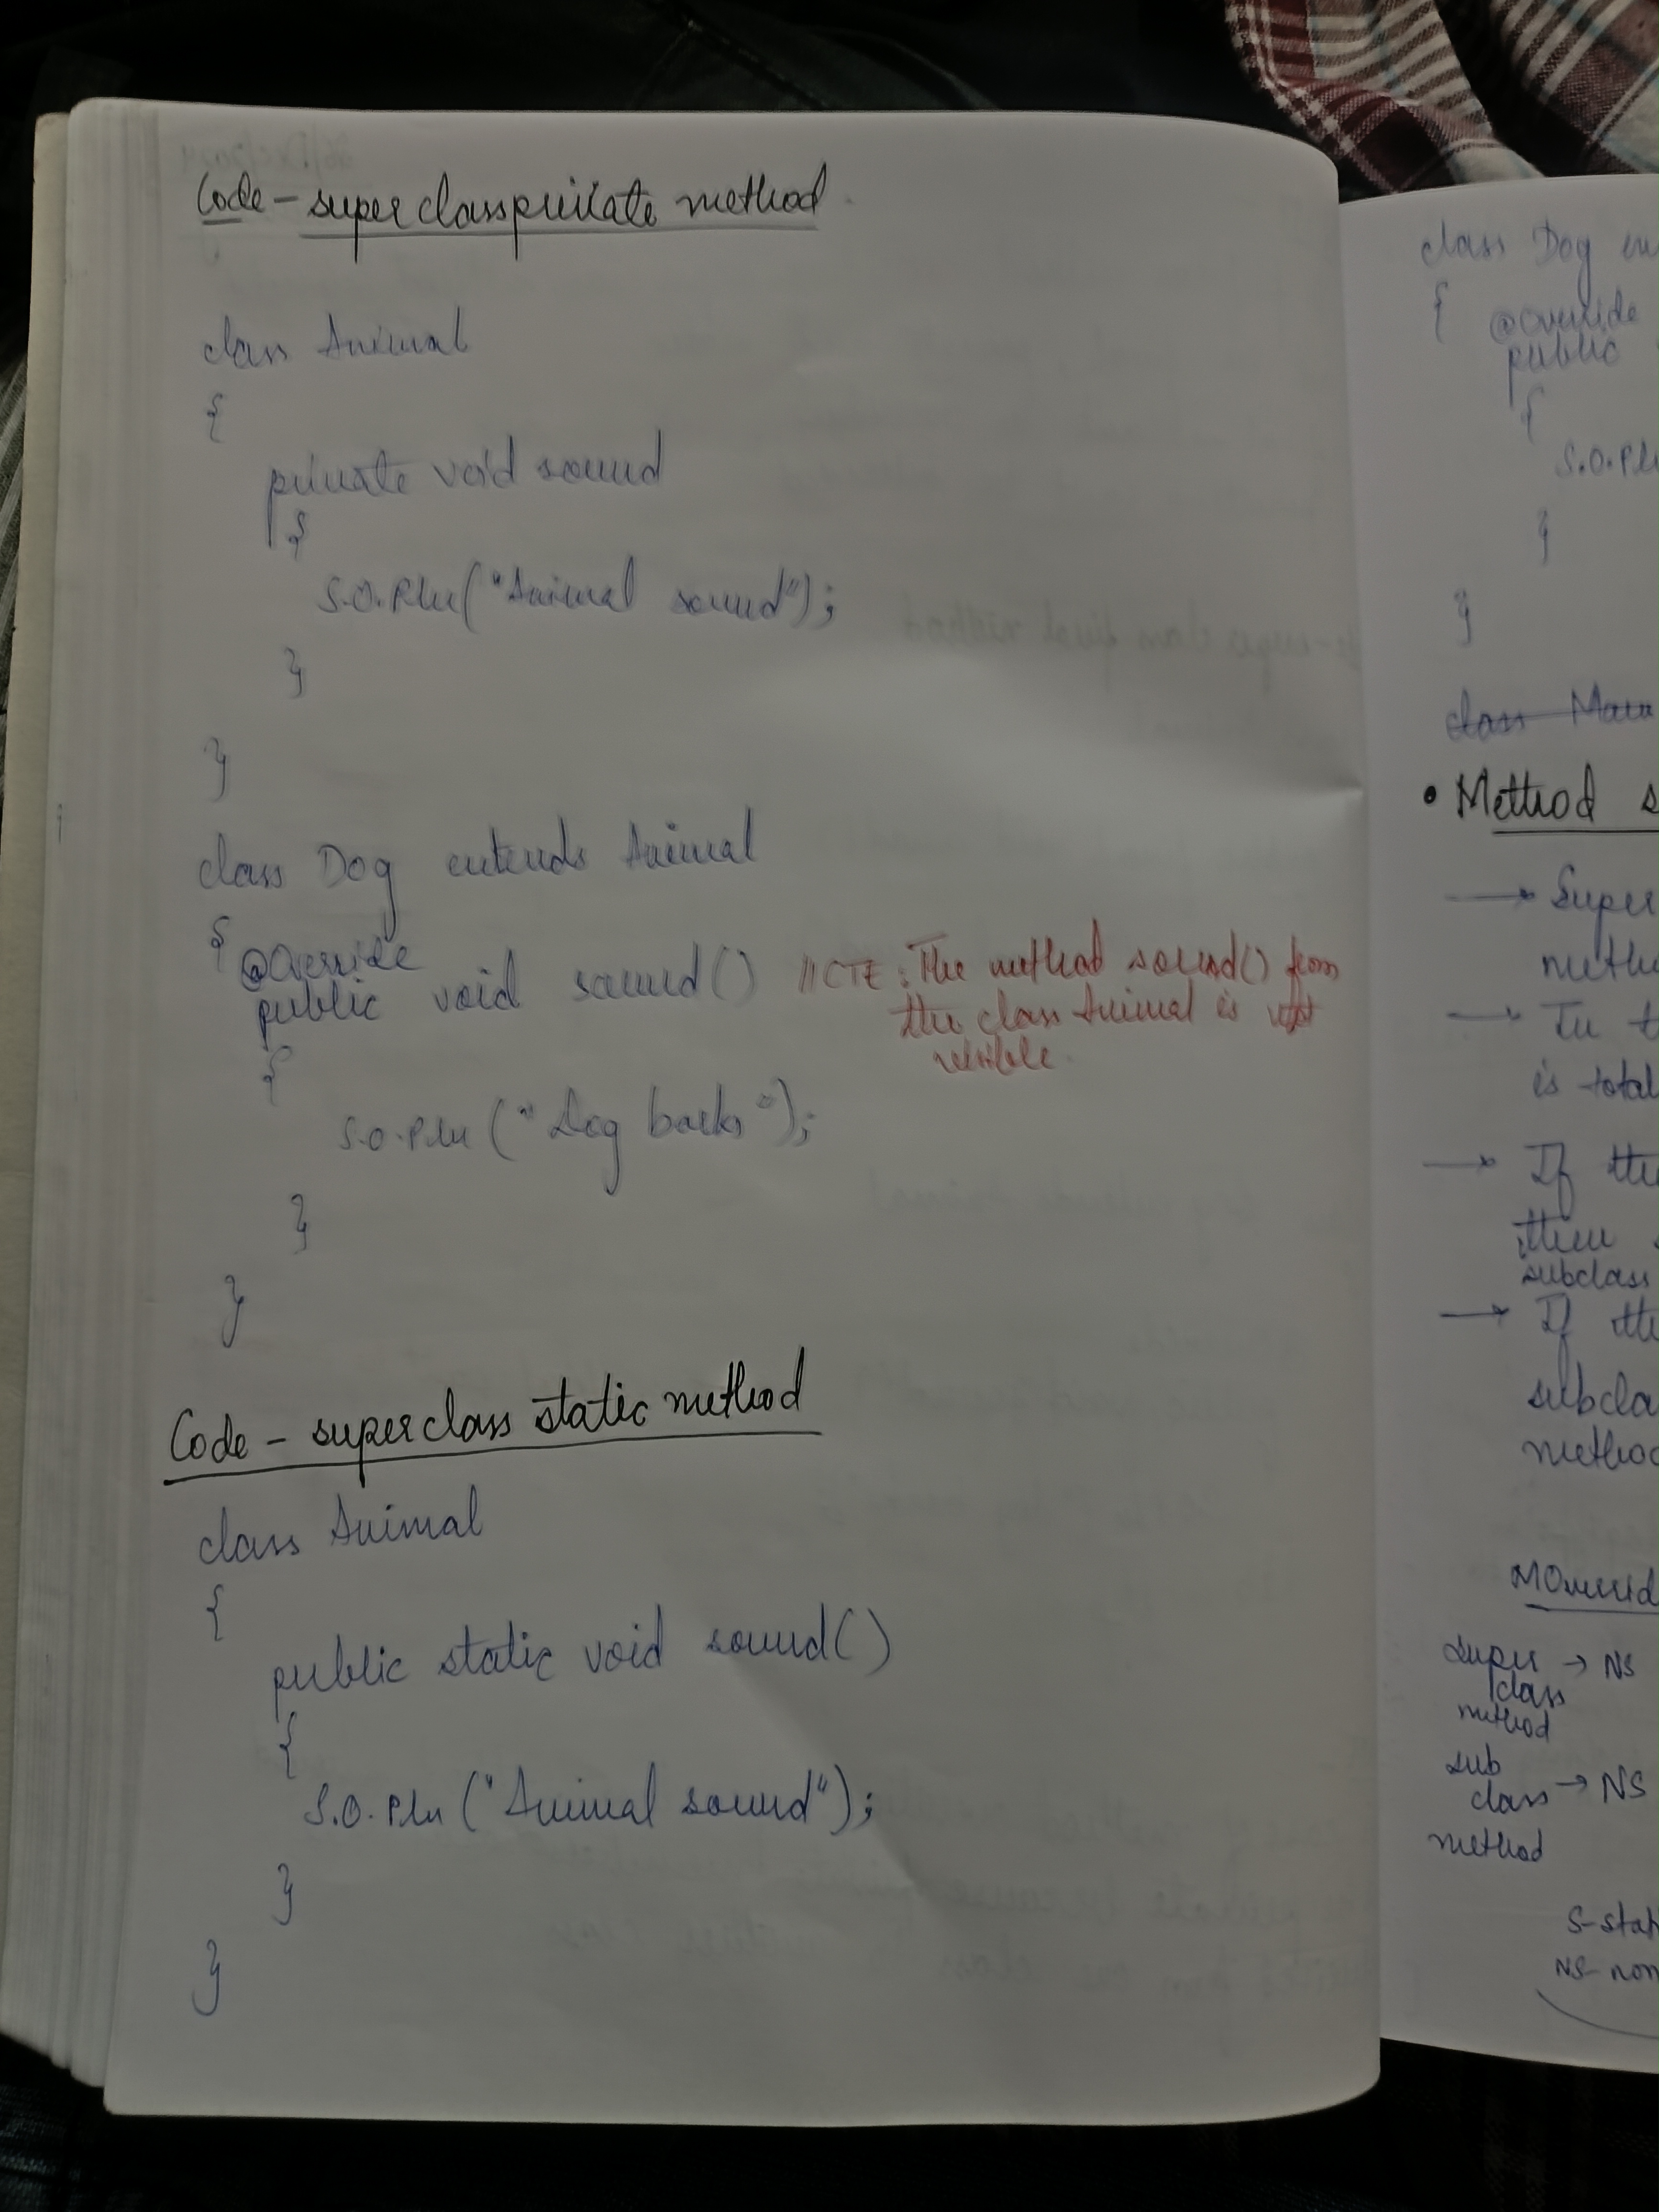 Code - superclass private method
class Animal
{
private void sound
{
S.O.Pln("Animal sound");
}
}
class Dog extends Animal
{ @Override
public void sound() //CTE: The method sound() from
the class Animal is not
visible.
{
S.O.Pln("Dog barks");
}
}
Code - superclass static method
class Animal
{
public static void sound()
{
S.O.Pln("Animal sound");
}
}
class Dog
{ @Override
public
{
S.O.Pl
}
}
class Main
• Method s
→ Super
→
is total
→ If
then
subclass
→ If
super → NS
class
method
sub
class → NS
method